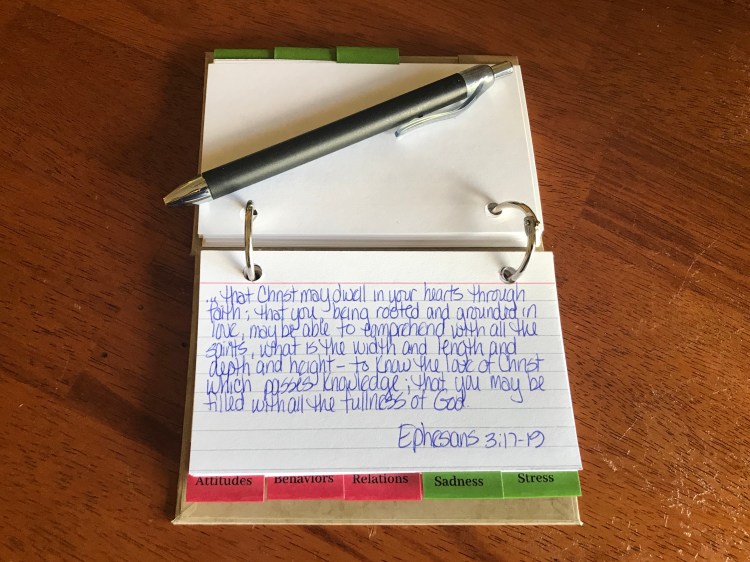 ... that Christ may dwell in your hearts through
faith; that you being rooted and grounded in
love, may be able to comprehend with all the
saints, what is the width and length and
depth and height - to know the love of Christ
which passes knowledge; that you may be
filled with all the fullness of God.
Ephesans 3:17-19
Attitudes Behaviors Relations Sadness Stress